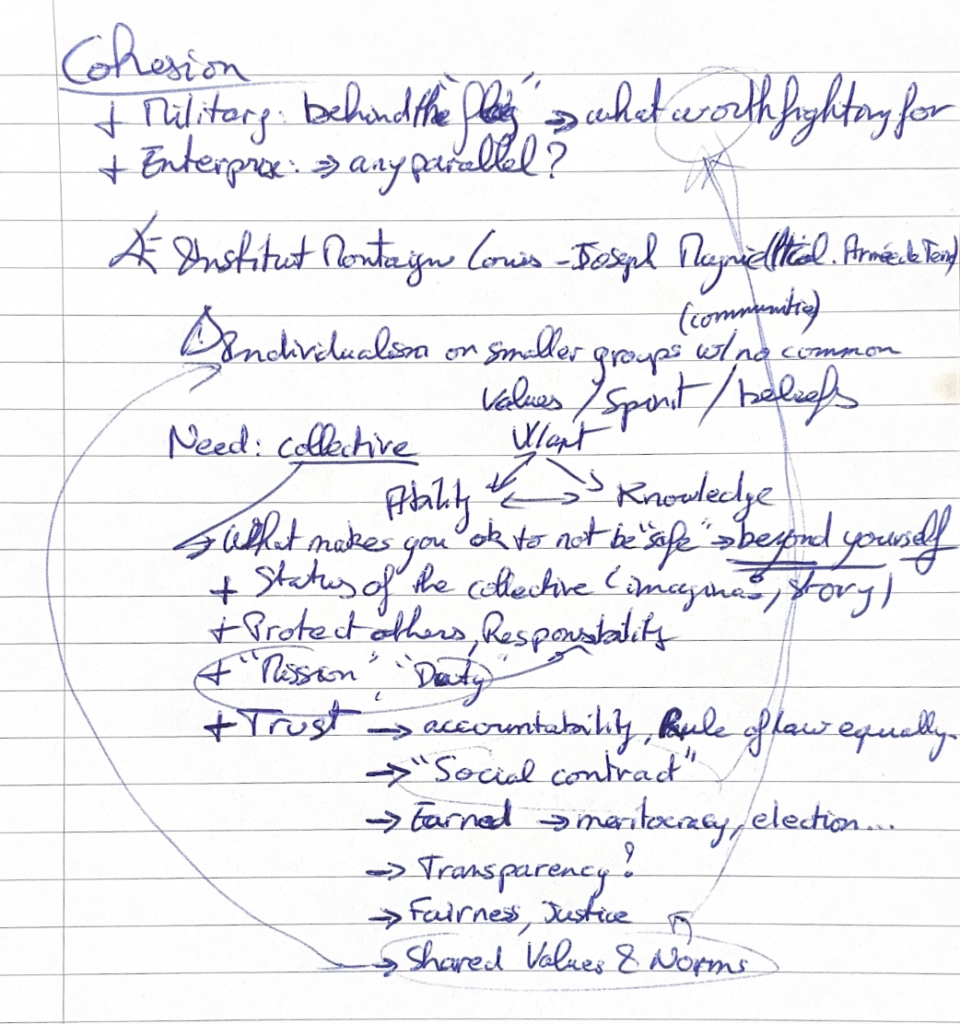 Cohesion
+ Military: behind the "flag" → what worth fighting for
+ Enterprise: ⇒ any parallel?
Institut Montaigne Louis-Joseph Armée de Terre)
(communities)
⚠ Individualism or smaller groups w/ no common
Values / Spirit / beliefs
Need: collective Want
Ability ↔ Knowledge
→ What makes you ok to not be "safe" → beyond yourself
+ Status of the collective (story)
+ Protect others, Responsability
+ "Mission" "Duty"
+ Trust → accountability, Rule of law equally.
→ "Social contract"
→ Earned → meritocracy, election...
→ Transparency?
→ Fairness, Justice
→ Shared Values & Norms